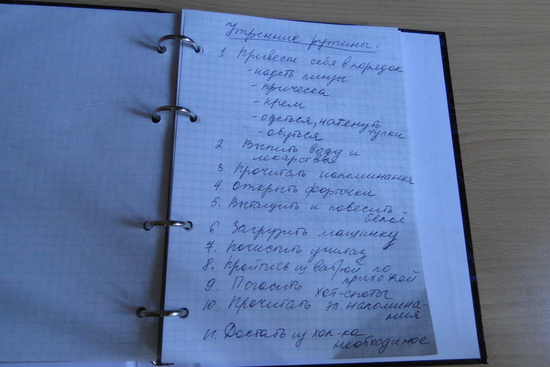 Утренние рутины:
1 Привести себя в порядок
- надеть линзы
- причёска
- крем
- одеться, натянуть чулки
- обуться
2 Выпить воду и
лекарства
3 Прочитать напоминания
4. Открыть форточки
5. Вытащить и повесить
бельё
6 Загрузить машинку
7. Почистить унитаз
8. Пройтись по
прихожей
9 Погасить хот-споты
10. Прочитать напомина-
ния
11. Достать из хол-ка
необходимое